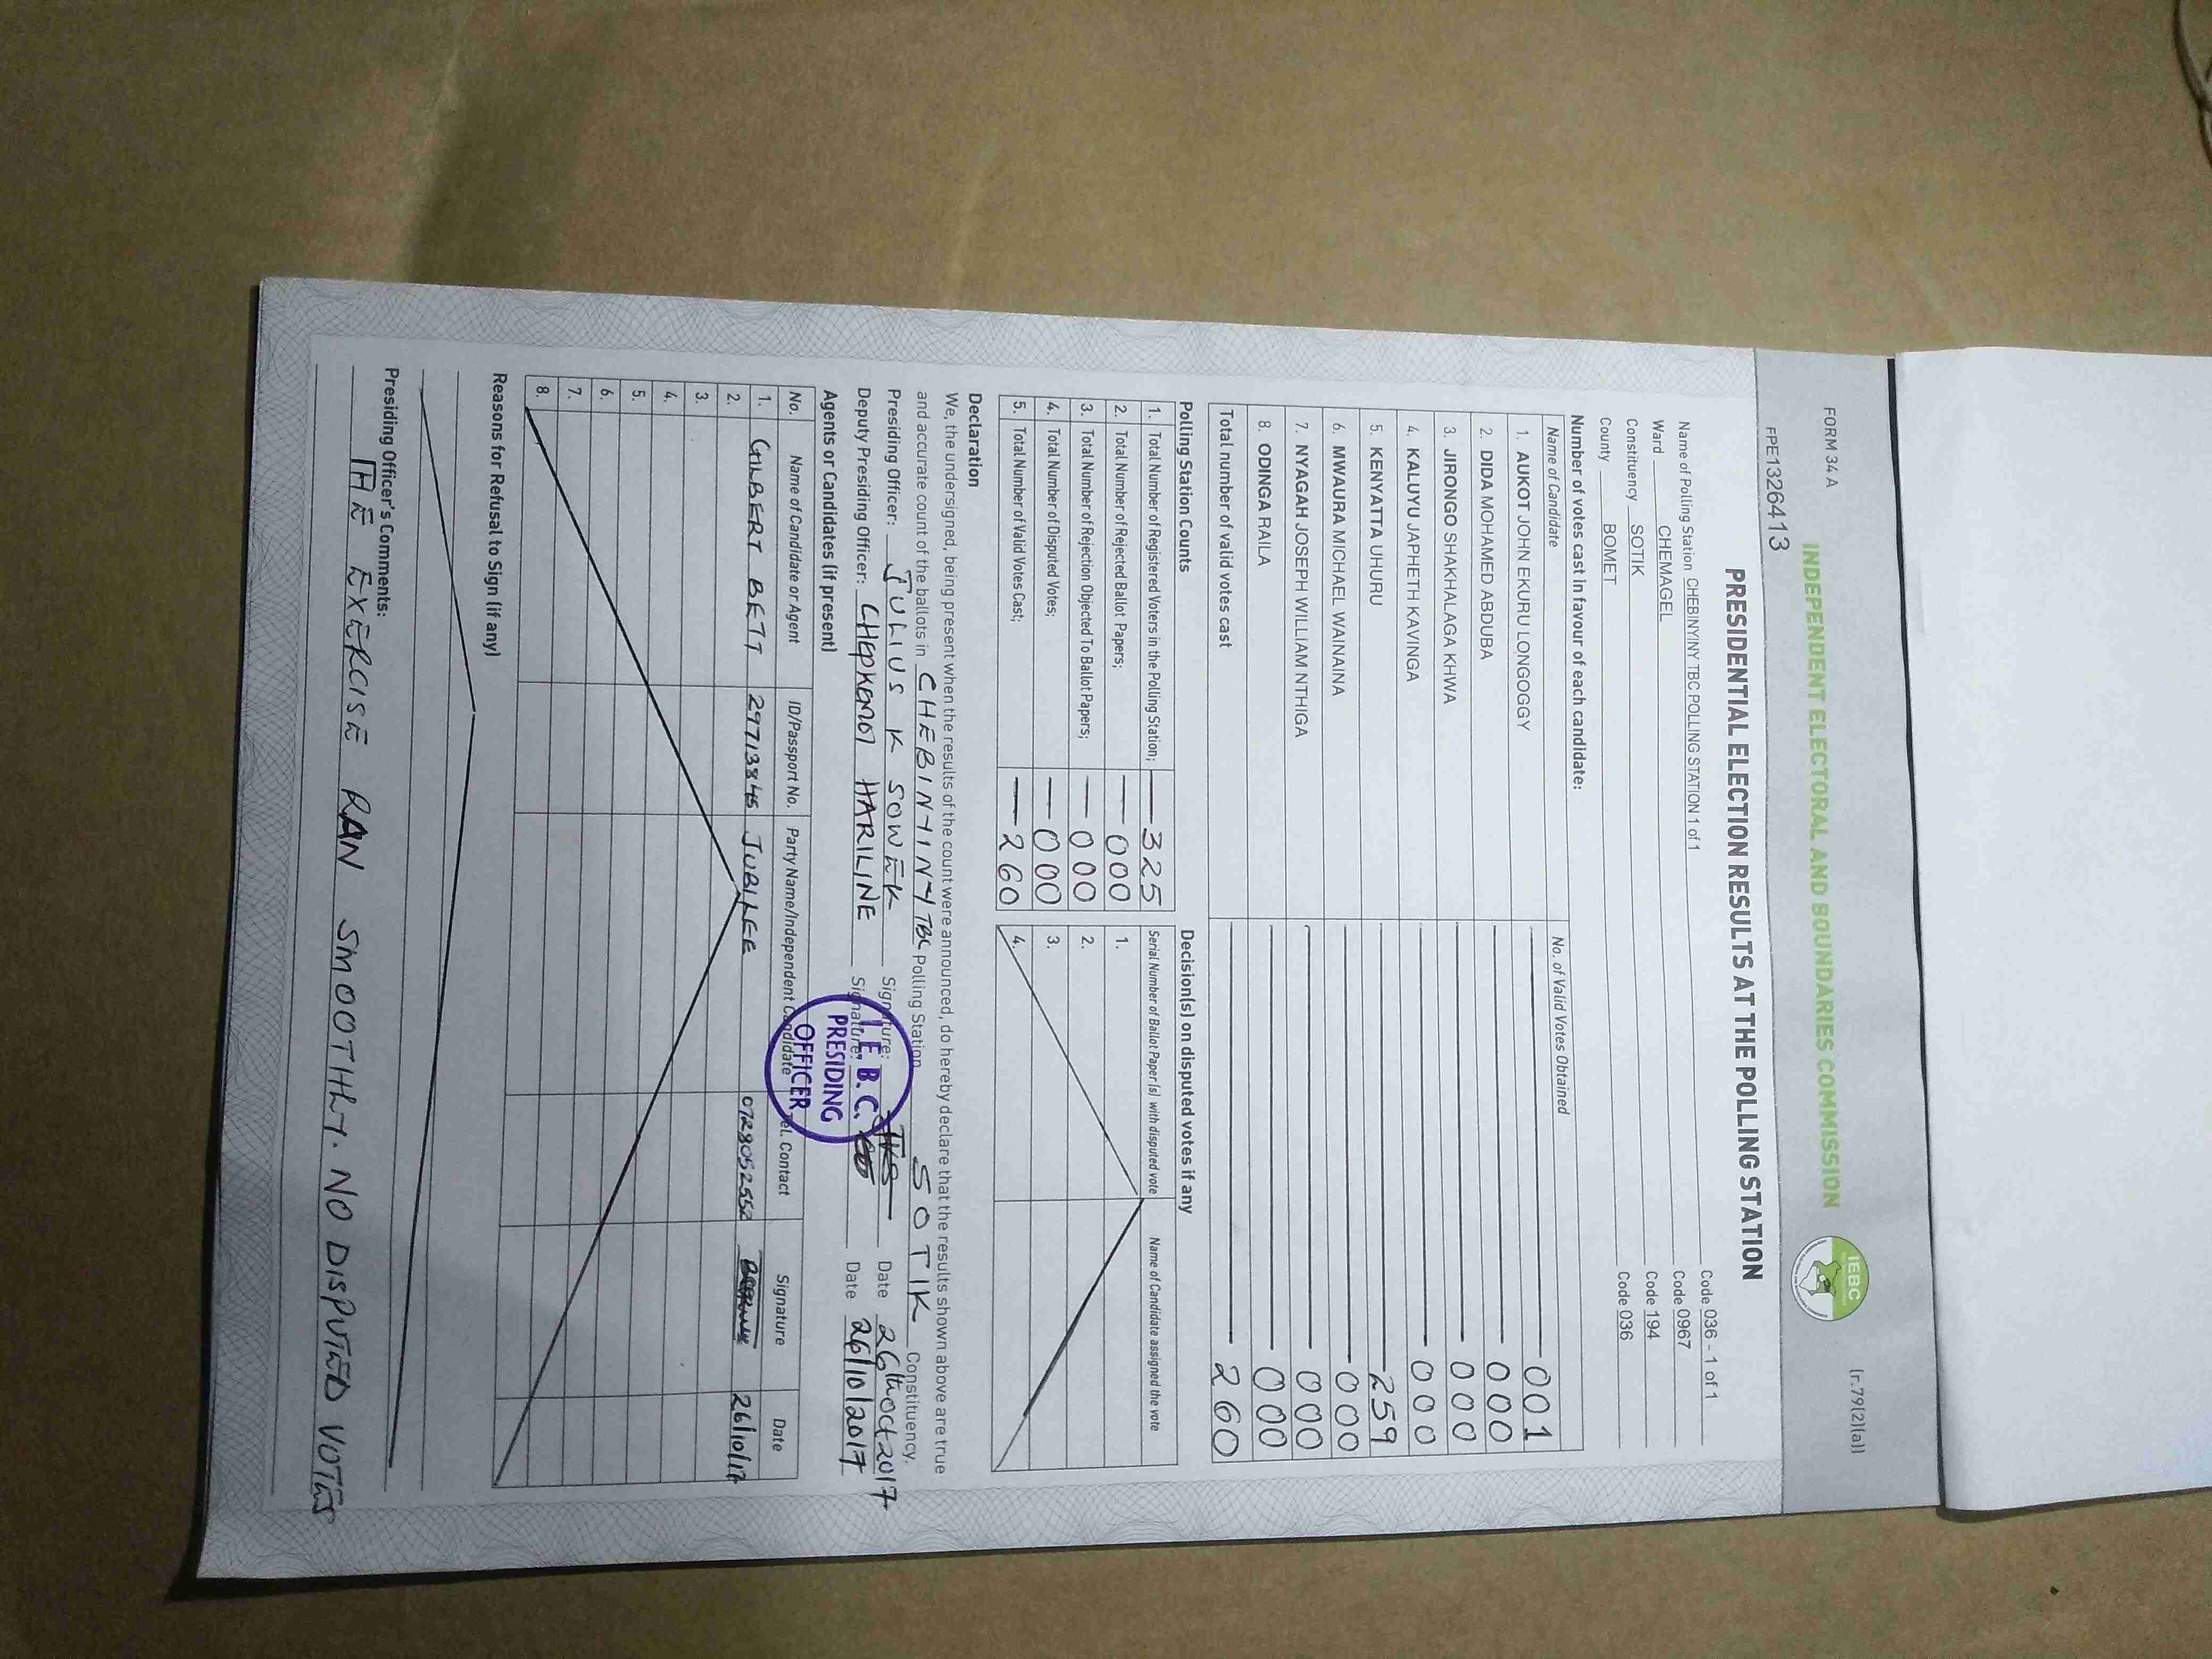 FORM 34 A
(r.79(2)(a))
INDEPENDENT ELECTORAL AND BOUNDARIES COMMISSION
IEBC
FPE1326413
PRESIDENTIAL ELECTION RESULTS AT THE POLLING STATION
Name of Polling Station CHEBINYINY TBC POLLING STATION 1 of 1 Code 036 - 1 of 1
Ward CHEMAGEL Code 0967
Constituency SOTIK Code 194
County BOMET Code 036
Number of votes cast in favour of each candidate:
Name of Candidate No. of Valid Votes Obtained
1. AUKOT JOHN EKURU LONGOGGY 001
2. DIDA MOHAMED ABDUBA 000
3. JIRONGO SHAKHALAGA KHWA 000
4. KALUYU JAPHETH KAVINGA 000
5. KENYATTA UHURU 259
6. MWAURA MICHAEL WAINAINA 000
7. NYAGAH JOSEPH WILLIAM NTHIGA 000
8. ODINGA RAILA 000
Total number of valid votes cast 260
Polling Station Counts
1. Total Number of Registered Voters in the Polling Station; 325
2. Total Number of Rejected Ballot Papers; 000
3. Total Number of Rejection Objected To Ballot Papers; 000
4. Total Number of Disputed Votes; 000
5. Total Number of Valid Votes Cast; 260
Decision(s) on disputed votes if any
Serial Number of Ballot Paper (s) with disputed vote Name of Candidate assigned the vote
1.
2.
3.
4.
Declaration
We, the undersigned, being present when the results of the count were announced, do hereby declare that the results shown above are true
and accurate count of the ballots in CHEBINYINY TBC Polling Station SOTIK Constituency.
Presiding Officer: JULIUS K SOWEK Signature: Date 26th Oct 2017
Deputy Presiding Officer: CHEPKEMOI HARILINE Signature: Date 26/10/2017
I.E.B.C.
PRESIDING
OFFICER
Agents or Candidates (if present)
No. Name of Candidate or Agent ID/Passport No. Party Name/Independent Candidate Tel. Contact Signature Date
1. GILBERT BETT 29713845 JUBILEE 0728052552 26/10/17
2.
3.
4.
5.
6.
7.
8.
Reasons for Refusal to Sign (if any)
Presiding Officer's Comments:
THE EXERCISE RAN SMOOTHLY. NO DISPUTED VOTES